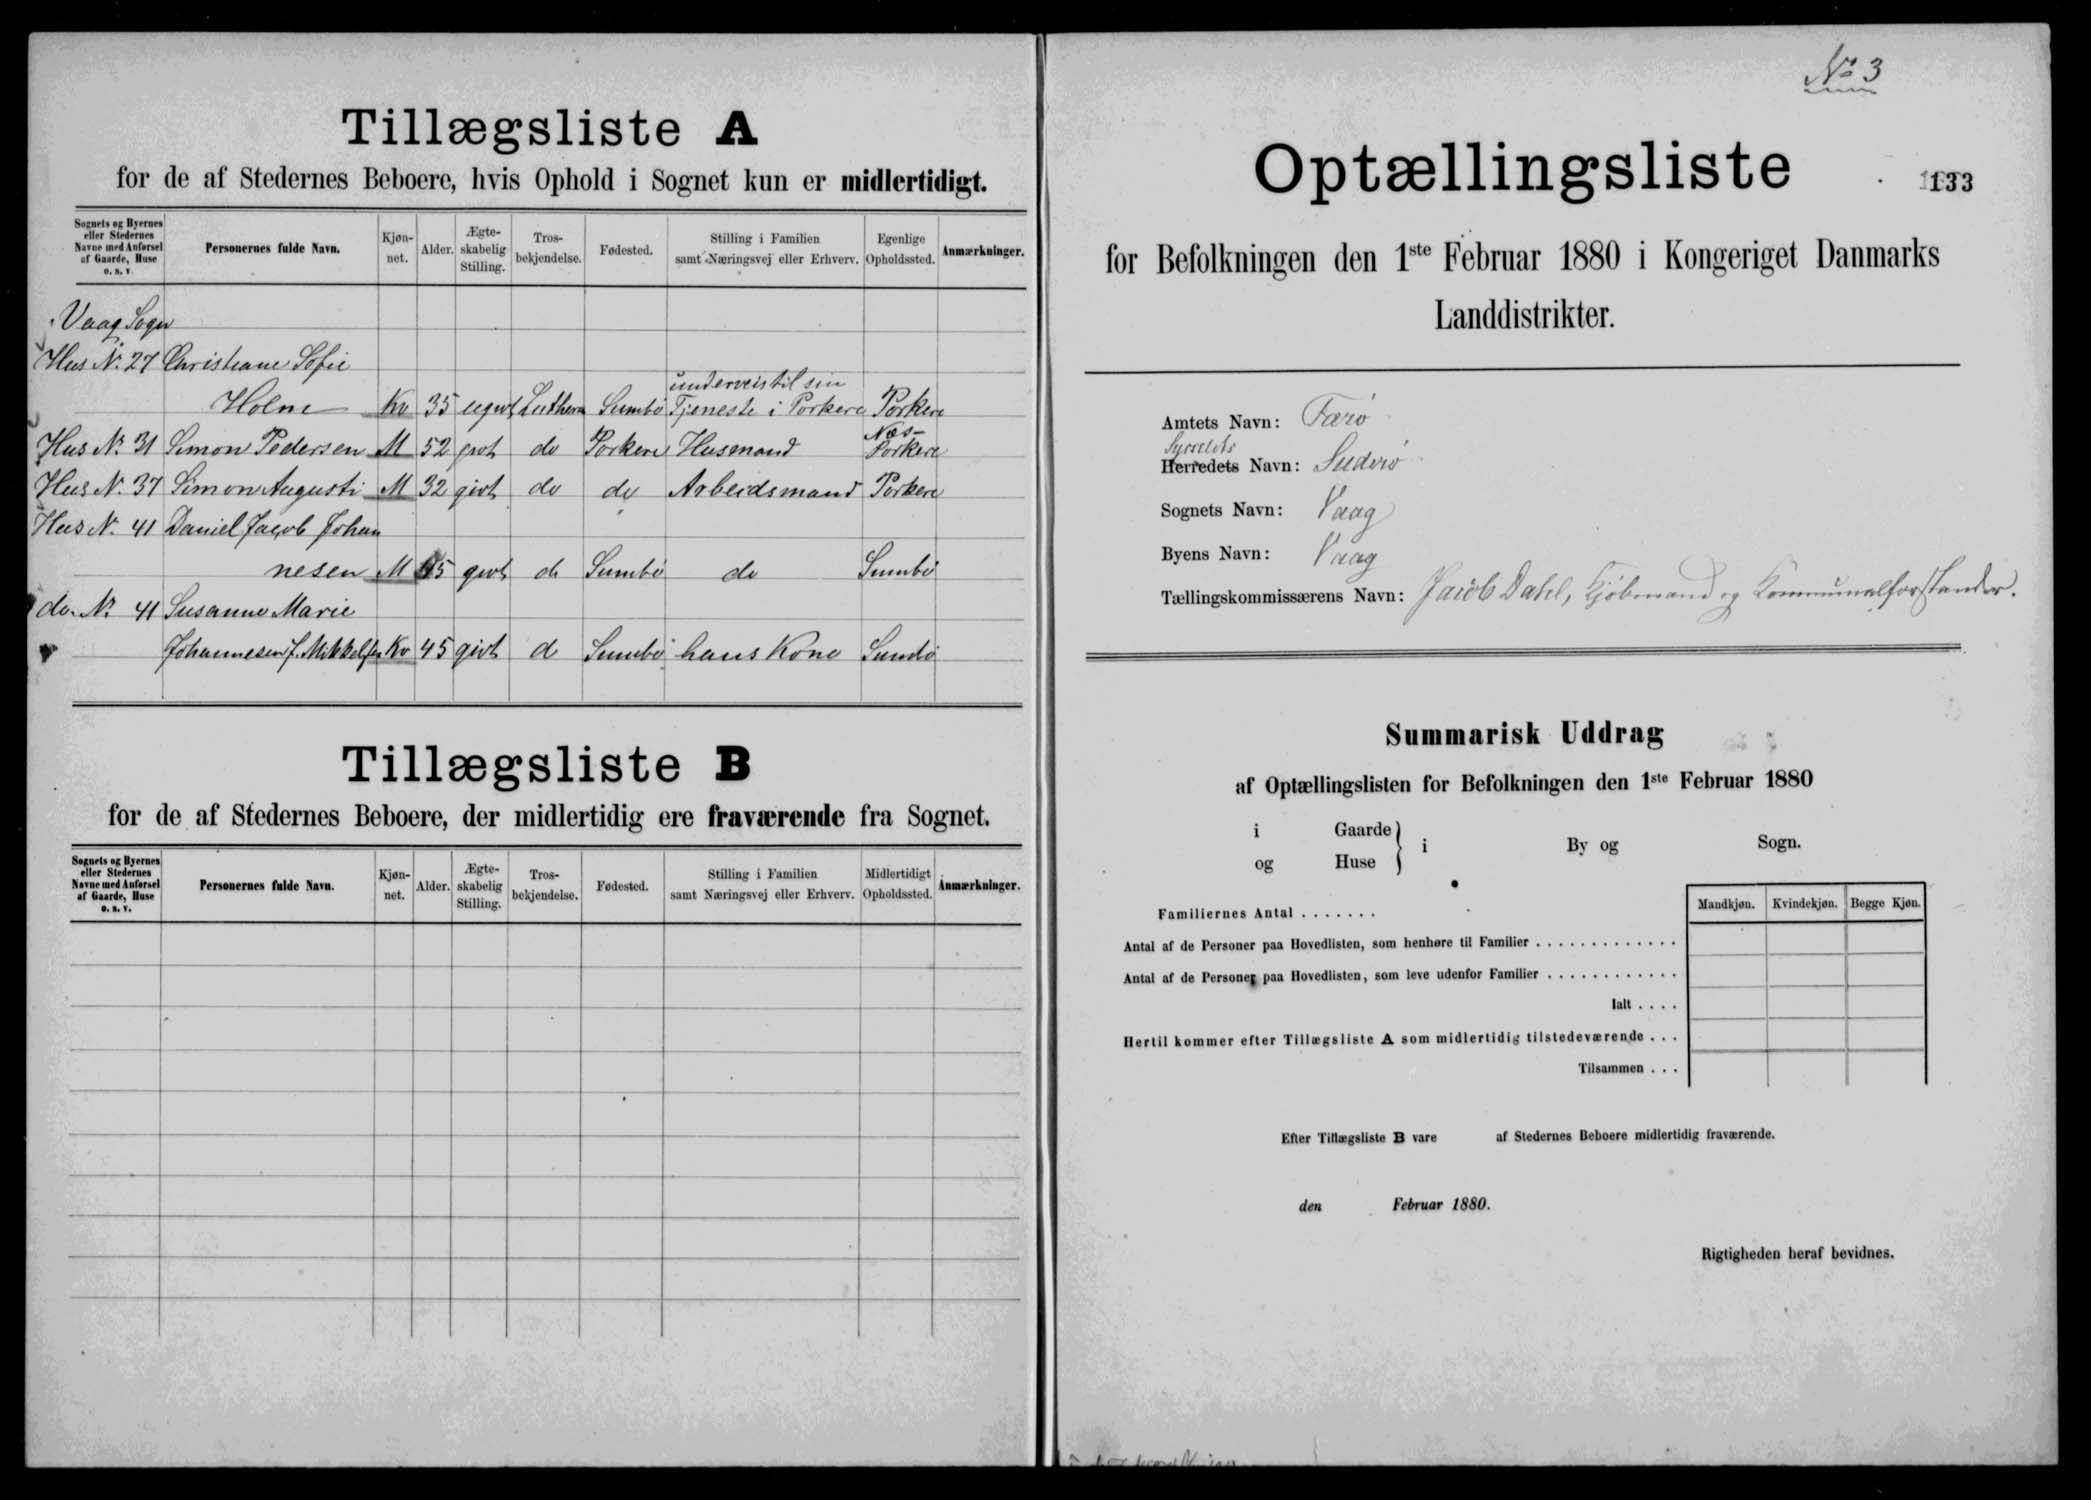 Tillægsliste A
for de af Stedernes Beboere, hvis Ophold i Sognet kun er midlertidigt.
Sognets og Byernes eller Stedernes Navne med Anførsel af Gaarde, Huse o. s. v.
Personernes fulde Navn.
Kjøn-net.
Alder.
Ægte-skabelig Stilling.
Tros-bekjendelse.
Fødested.
Stilling i Familien samt Næringsvej eller Erhverv.
Egenlige Opholdssted.
Anmærkninger.
Vaag Sogn
Hus №. 27 Christiane Sofie
underveis til sin
Holm Kv 35 ugivt Luthern Sumbø Tjeneste i Porkere Porkere
Næs-
Hus №. 31 Simon Pedersen M 52 givt do Porkere Husmand Porkere
Hus №. 37 Simon Augusti M 32 givt do do Arbeidsmand Porkere
Hus №. 41 Daniel Jacob Johan
nesen M 45 givt do Sumbø do Sumbø
do. №. 41 Susanne Marie
Johannesen f. Mikkelsen Kv 45 givt d Sumbø hans Kone Sumbø
Tillægsliste B
for de af Stedernes Beboere, der midlertidig ere fraværende fra Sognet.
Sognets og Byernes eller Stedernes Navne med Anførsel af Gaarde, Huse o. s. v.
Personernes fulde Navn.
Kjøn-net.
Alder.
Ægte-skabelig Stilling.
Tros-bekjendelse.
Fødested.
Stilling i Familien samt Næringsvej eller Erhverv.
Midlertidigt Opholdssted.
Anmærkninger.
№ 3
Optællingsliste
133
for Befolkningen den 1ste Februar 1880 i Kongeriget Danmarks
Landdistrikter.
Amtets Navn: Færø
Sysselets
Herredets Navn: Suderø
Sognets Navn: Vaag
Byens Navn: Vaag
Tællingskommissærens Navn: Jacob Dahl, Kjøbmand og Kommunalforstander.
Summarisk Uddrag
af Optællingslisten for Befolkningen den 1ste Februar 1880
i Gaarde
og Huse } i By og Sogn.
Mandkjøn. Kvindekjøn. Begge Kjøn.
Familiernes Antal . . . . . . .
Antal af de Personer paa Hovedlisten, som henhøre til Familier . . . . . . . . . . . . .
Antal af de Personer paa Hovedlisten, som leve udenfor Familier . . . . . . . . . . . .
Ialt . . . .
Hertil kommer efter Tillægsliste A som midlertidig tilstedeværende . . .
Tilsammen . . .
Efter Tillægsliste B vare af Stedernes Beboere midlertidig fraværende.
den Februar 1880.
Rigtigheden heraf bevidnes.